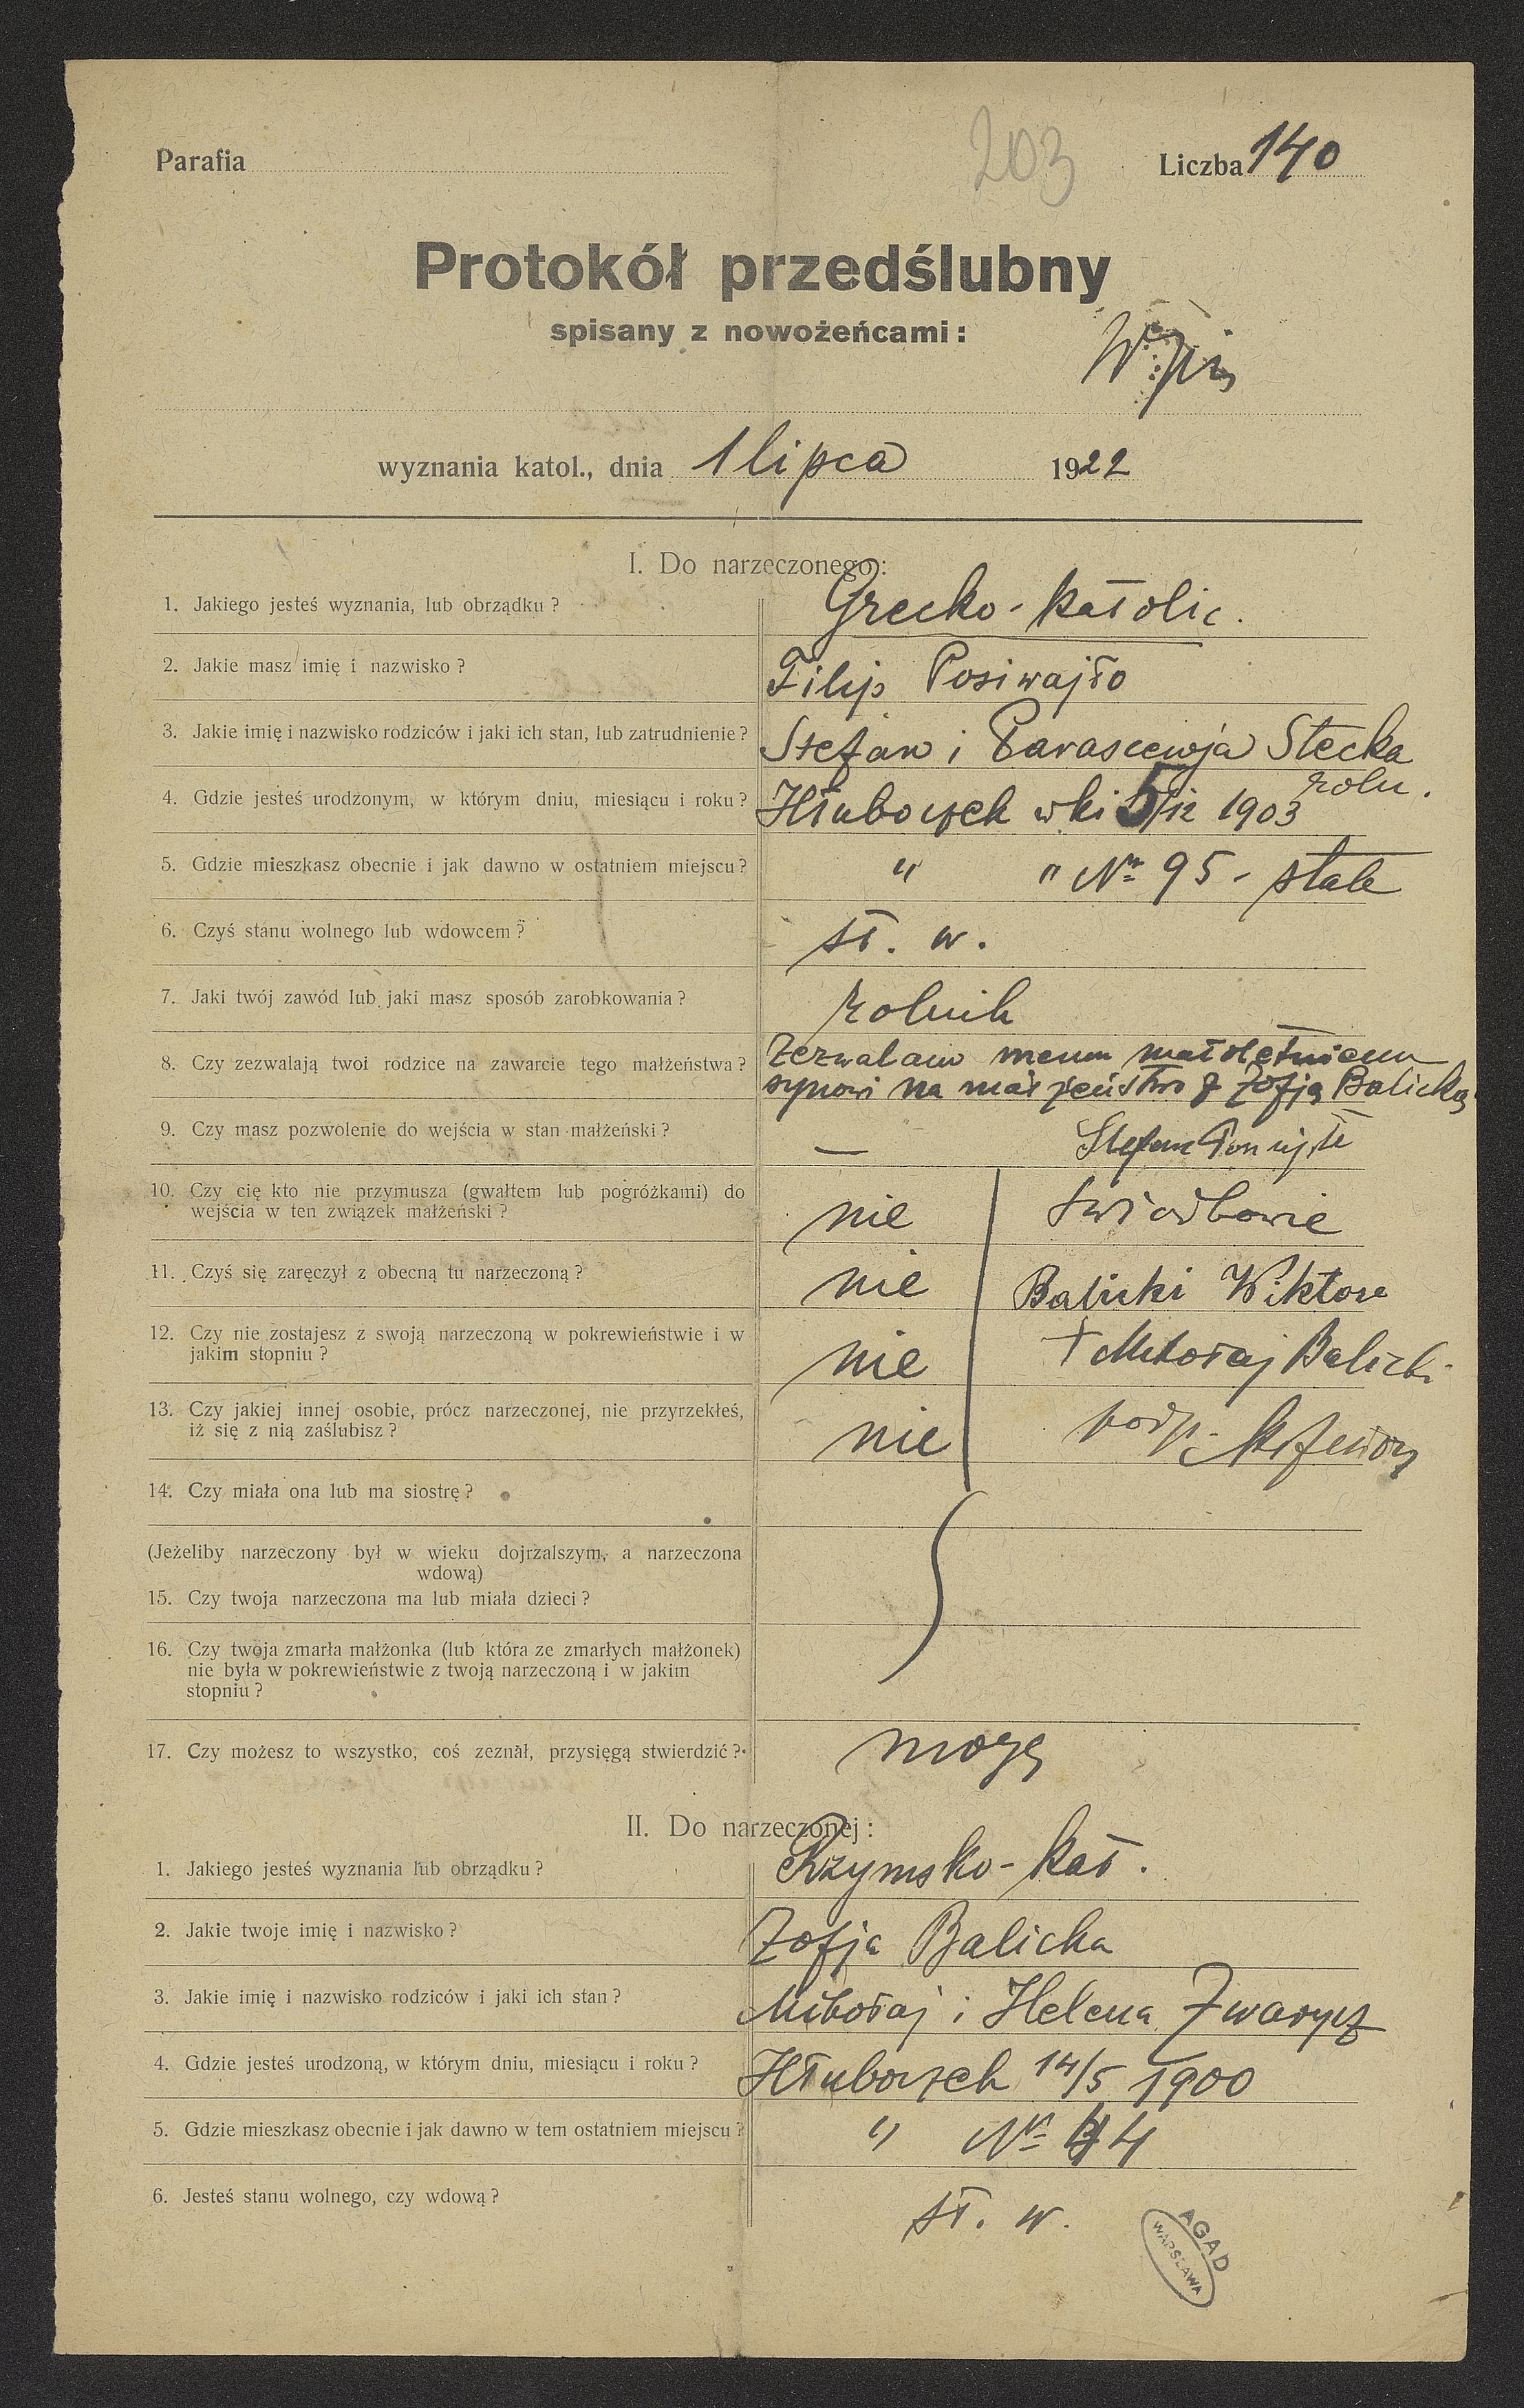 203
Parafia
Liczba 140
Protokół przedślubny
spisany z nowożeńcami:
wyznania katol., dnia 1 lipca 1922
I. Do narzeczonego:
1. Jakiego jesteś wyznania, lub obrządku? Grecko-katolic.
2. Jakie masz imię i nazwisko? Filip Posiwajło
3. Jakie imię i nazwisko rodziców i jaki ich stan, lub zatrudnienie? Stefan i Parascewja Stecka
roln.
4. Gdzie jesteś urodzonym, w którym dniu, miesiącu i roku? Hłuboczek wki 5/12 1903
5. Gdzie mieszkasz obecnie i jak dawno w ostatniem miejscu? " " Nr 95 - stale
6. Czyś stanu wolnego lub wdowcem? st. w.
7. Jaki twój zawód lub jaki masz sposób zarobkowania? rolnik
8. Czy zezwalają twoi rodzice na zawarcie tego małżeństwa? Zezwalam memu małoletniemu
synowi na małżeństwo z Zofją Balicką
9. Czy masz pozwolenie do wejścia w stan małżeński? — Stefan
10. Czy cię kto nie przymusza (gwałtem lub pogróżkami) do
wejścia w ten związek małżeński? nie świadkowie
11. Czyś się zaręczył z obecną tu narzeczoną? nie Balicki Wiktor
12. Czy nie zostajesz z swoją narzeczoną w pokrewieństwie i w
jakim stopniu? nie + Mikołaj Balicki
13. Czy jakiej innej osobie, prócz narzeczonej, nie przyrzekłeś,
iż się z nią zaślubisz? nie podp.
14. Czy miała ona lub ma siostrę?
(Jeżeliby narzeczony był w wieku dojrzalszym, a narzeczona
wdową)
15. Czy twoja narzeczona ma lub miała dzieci?
16. Czy twoja zmarła małżonka (lub która ze zmarłych małżonek)
nie była w pokrewieństwie z twoją narzeczoną i w jakim
stopniu?
17. Czy możesz to wszystko, coś zeznał, przysięgą stwierdzić? mogę
II. Do narzeczonej:
1. Jakiego jesteś wyznania lub obrządku? Rzymsko-kat.
2. Jakie twoje imię i nazwisko? Zofja Balicka
3. Jakie imię i nazwisko rodziców i jaki ich stan? Mikołaj i Helena Zwarycz
4. Gdzie jesteś urodzoną, w którym dniu, miesiącu i roku? Hłuboczek 14/5 1900
5. Gdzie mieszkasz obecnie i jak dawno w tem ostatniem miejscu? " Nr 44
6. Jesteś stanu wolnego, czy wdową? st. w.
AGAD
WARSZAWA